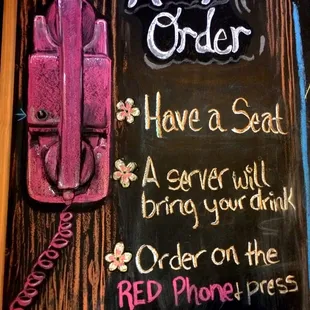 Order
Have a Seat
A server will
bring your drink
Order on the
RED Phone + press